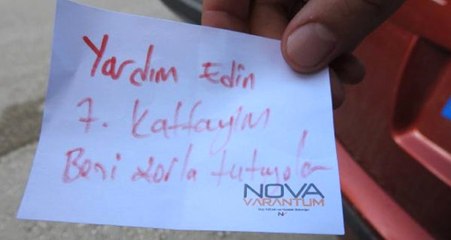 Yardım Edin
7. Kattayım
Beni zorla tutuyolar
NOVA
VARANTUM